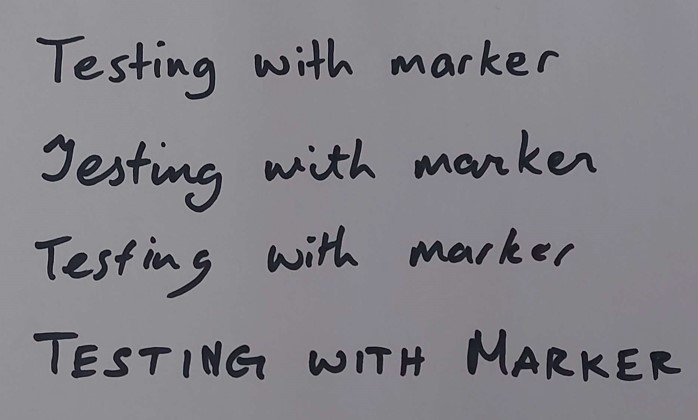 Testing with marker
Testing with marker
Testing with marker
TESTING WITH MARKER